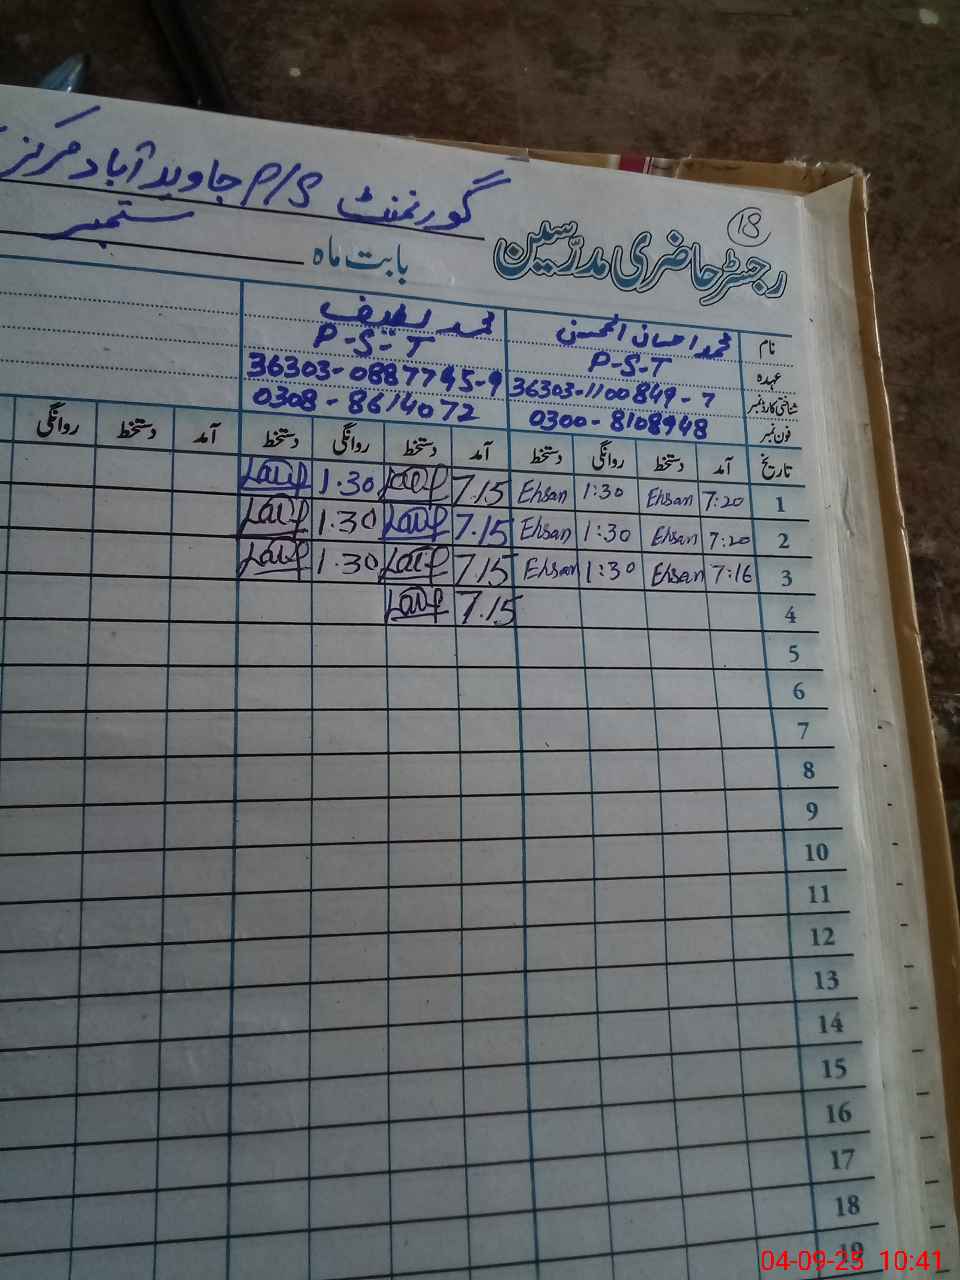 18
گورنمنٹ P/S جاوید آباد مرکز
رجسٹر حاضری مدرسین بابت ماہ ستمبر
نام محمد احسان الحسن محمد لطیف
عہدہ P-S-T P-S-T
شناختی کارڈ نمبر 36303-1100849-7 36303-0887745-9
فون نمبر 0300-8108948 0308-8614072
تاریخ آمد دستخط روانگی دستخط آمد دستخط روانگی دستخط آمد دستخط روانگی
1 7:20 Ehsan 1:30 Ehsan 7.15 Latif 1.30 Latif
2 7:20 Ehsan 1:30 Ehsan 7.15 Latif 1.30 Latif
3 7:16 Ehsan 1:30 Ehsan 7.15 Latif 1.30 Latif
4 7.15 Latif
5
6
7
8
9
10
11
12
13
14
15
16
17
18
19
04-09-25 10:41